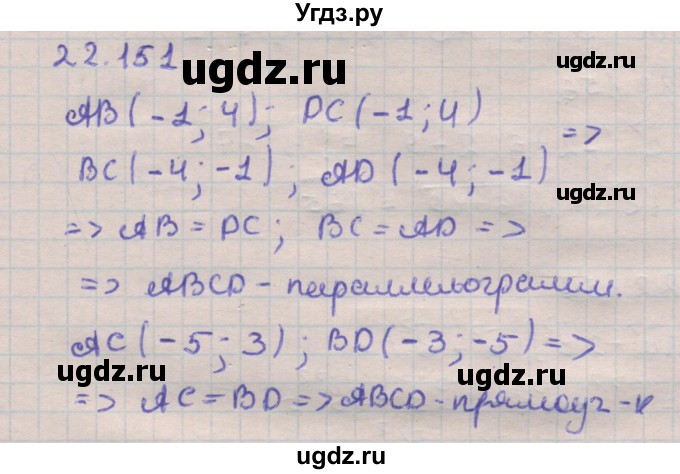 Угдз.ру
22.151
ugdz.ru
ugdz.ru
AB(-1; 4); DC(-1; 4)
=>
BC(-4; -1); AD(-4; -1)
ugdz.ru
=> AB = DC; BC = AD =>
=> ABCD - параллелограмм.
AC(-5; 3); BD(-3; -5) =>
ugdz.ru
ugdz.ru
=> AC = BD => ABCD - прямоуг-к
ugdz.ru